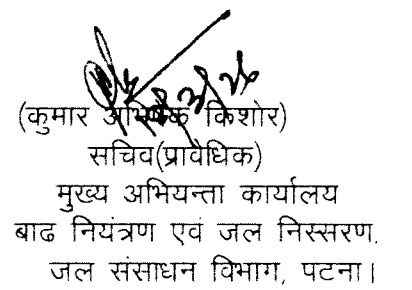 (कुमार अभिषेक किशोर)
सचिव(प्रावैधिक)
मुख्य अभियन्ता कार्यालय
बाढ नियंत्रण एवं जल निस्सरण,
जल संसाधन विभाग, पटना।